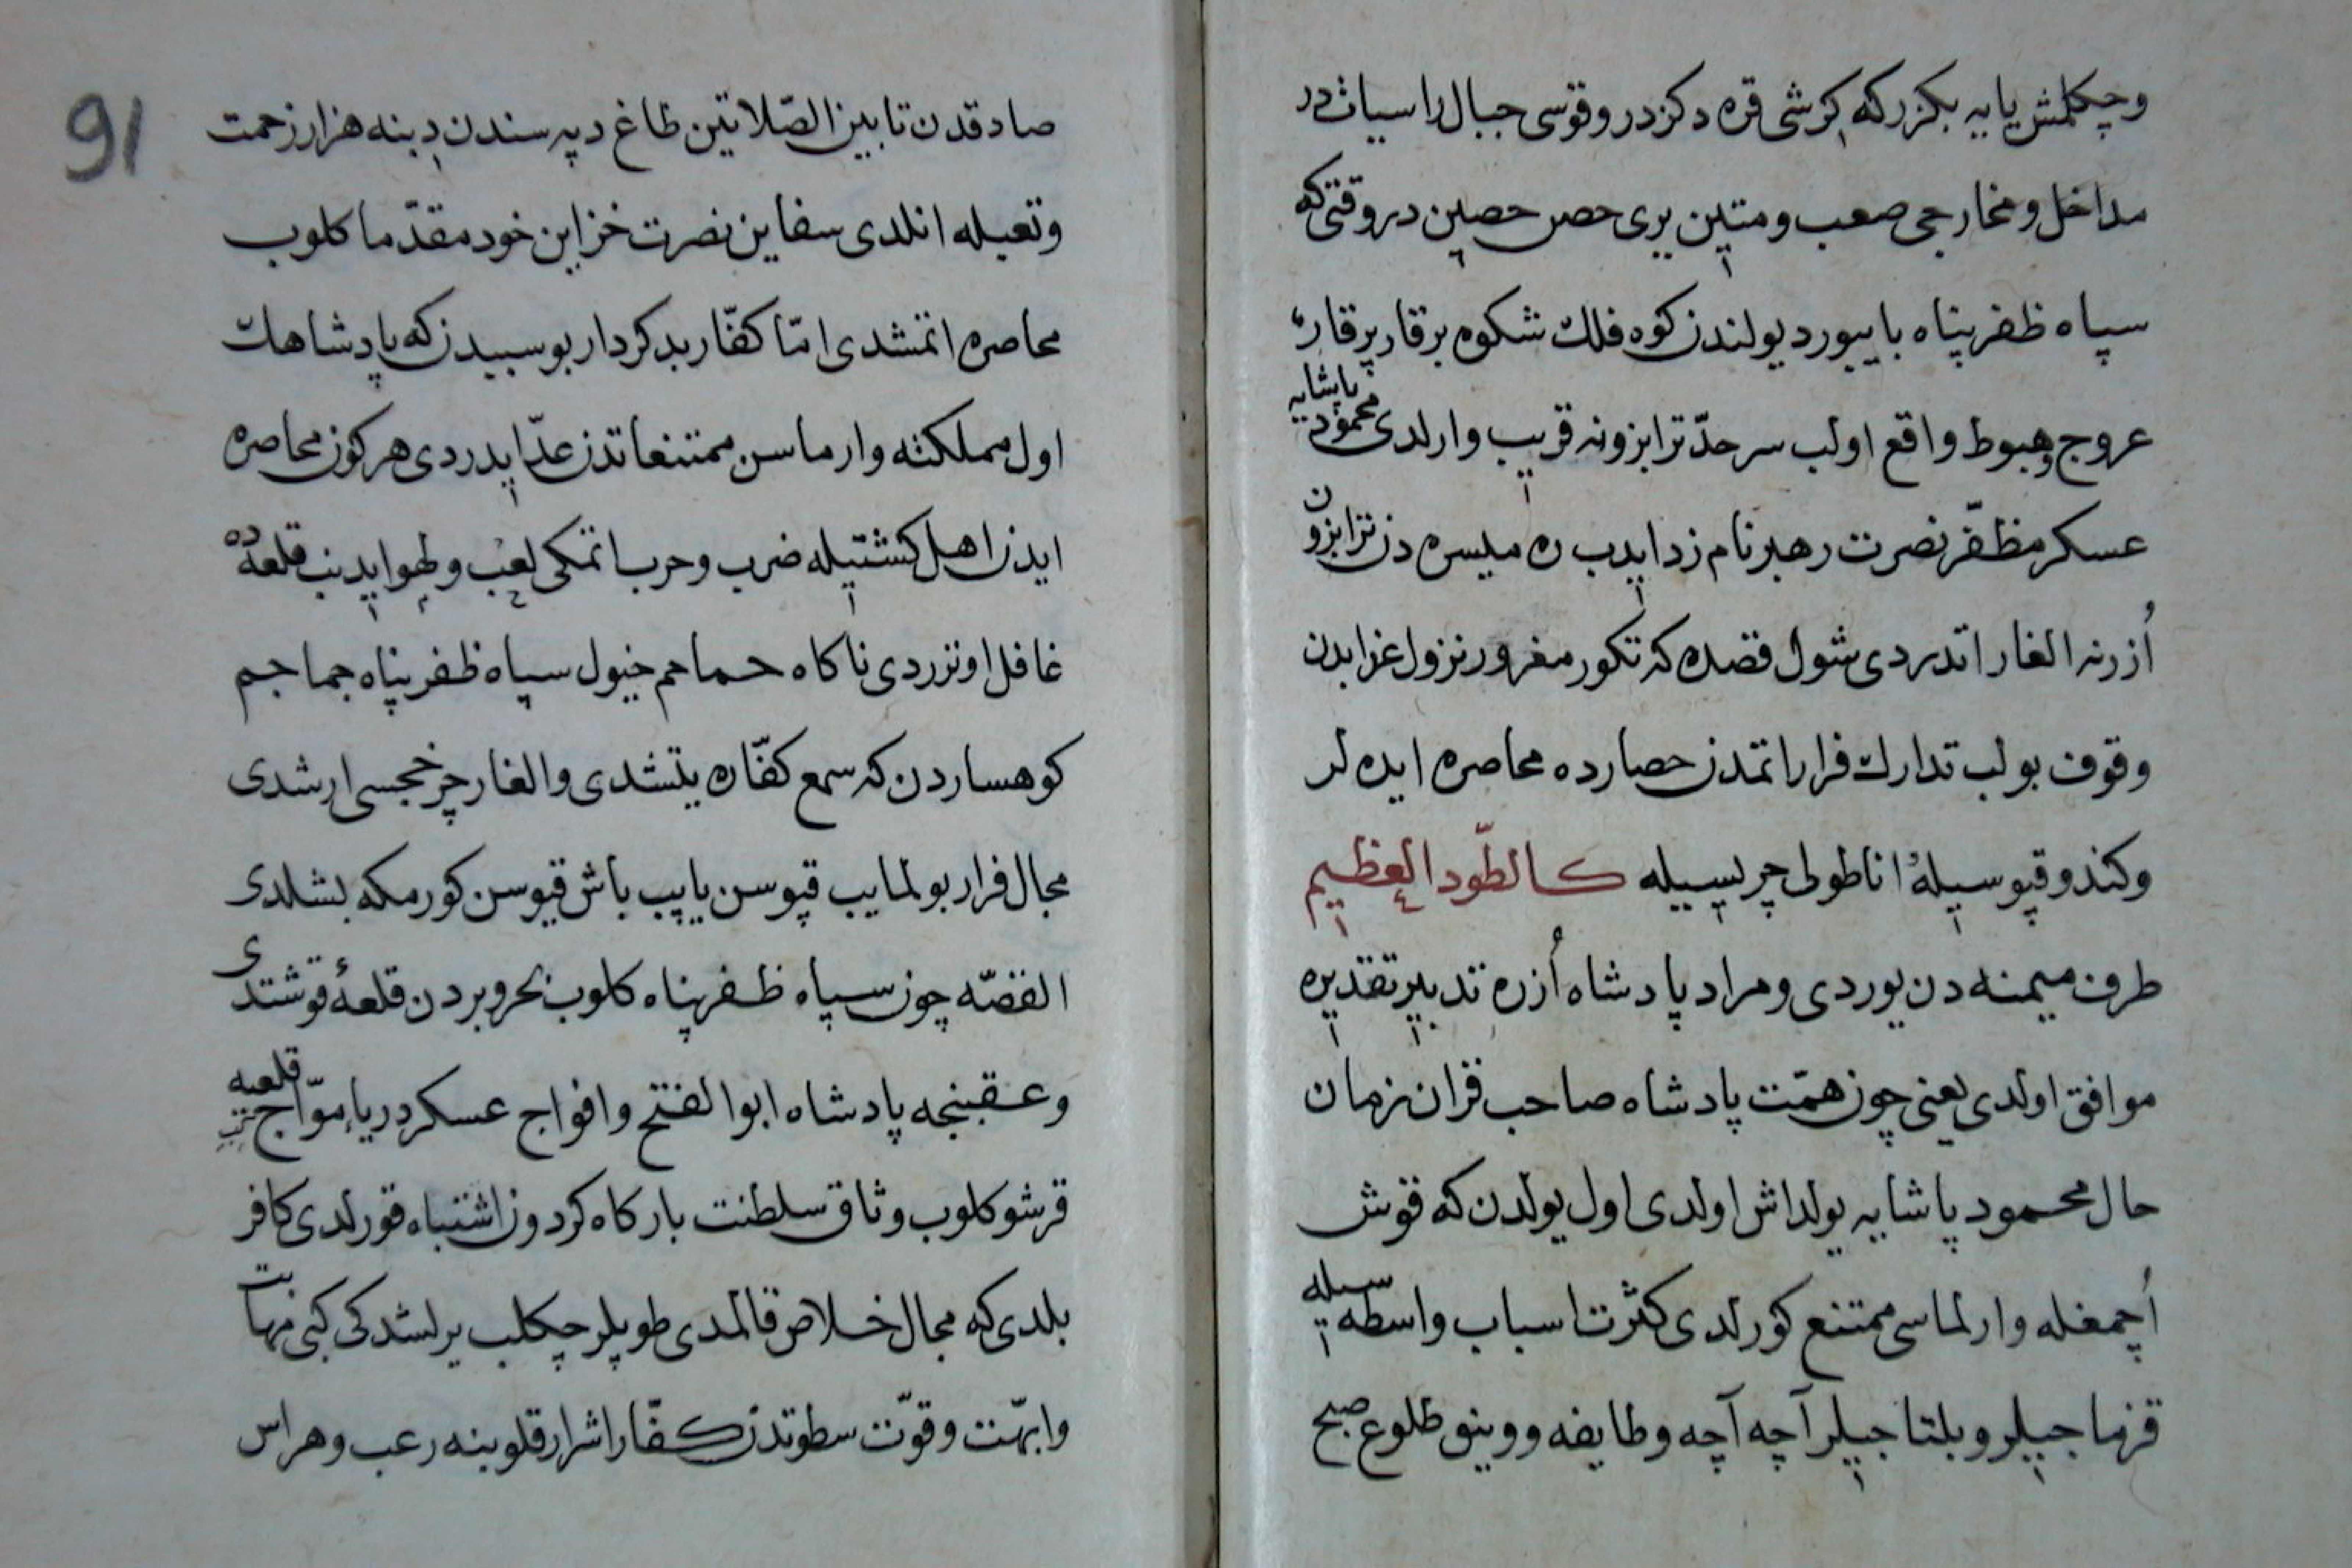 وچكلمش يايه بكزر كه كرشى قره دكزدر وقوسى جبال راسياتدر
مداخل ومخارجى صعب ومتين يرى حصن حصين در وقتى كه
سپاه ظفر پناه بايبورد يولندن كوه فلك شكوم برقار پرقاره
عروج وهبوط واقع اولب سرحدّ ترابزونه قريب وارلدى محمود پاشايه
عسكر مظفّر نصرت رهبر نام زد ايدب ميسره دن ترابزون
اُزرنه الغار اتدردى شول قصده كه تكور مغرور نزول غزايدن
وقوف بولب تدارك فرار اتمدن حصارده محاصره ايده لر
وكندو قپوسيله اناطولى چريسييله كالطّود العظيم
طرف ميمنه دن يوردى ومراد پادشاه اُزره تدبير تقديره
موافق اولدى يعنى چون همّت پادشاه صاحب قران زمان
حال محمود پاشايه يولداش اولدى اول يولدن كه قوش
اُچمغله وارلماسى ممتنع كورلدى كثرت اسباب واسطه سيله
قزماجيلر وبلتاجيلر آچه آچه وطايفه طلوع صبح
91
صادقدن تا بين الصّلاتين طاغ دپه سندن دبنه هزار زحمت
وتعبله انلدى سفاين نصرت خزاين خود مقدّما كلوب
محاصره اتمشدى امّا كفّار بدكردار بو سببدن كه پادشاهك
اول مملكته وارماسن ممتنعاتدن عدّ ايدردى هر كون محاصره
ايدن اهل كشتيله ضرب وحرب اتمكى لعب ولهو ايدنب قلعه ده
غافل اوتزردى ناكاه حماحم خيول سپاه ظفر پناه جماجم
كوهساردن كه سمع كفّاره يتشدى والغار چرخجسى ارشدى
مجال فرار بولمايب قپوسن يايپ باش قيوسن كورمكه بشلدى
القصّه چون سپاه ظفر پناه كلوب بحر وبردن قلعهٔ قوشتدى
وعقبنجه پادشاه ابو الفتح وافواج عسكر درياء موّاج قلعيه
قرشو كلوب وثاق سلطنت باركاه كردون اشتباه قورلدى كافر
بلدى كه مجال خلاص قالمدى طوپلر چكلب يرلشدكى كبى مهابت
وابهّت وقوّت سطوتدن كفّار اشرار قلوبنه رعب وهراس